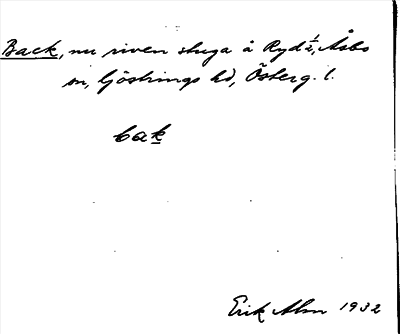 Back, nu riven stuga å Ryd ½, Åsbo
sn, Göstrings hd, Österg. l.
bak
Erik Alm 1932